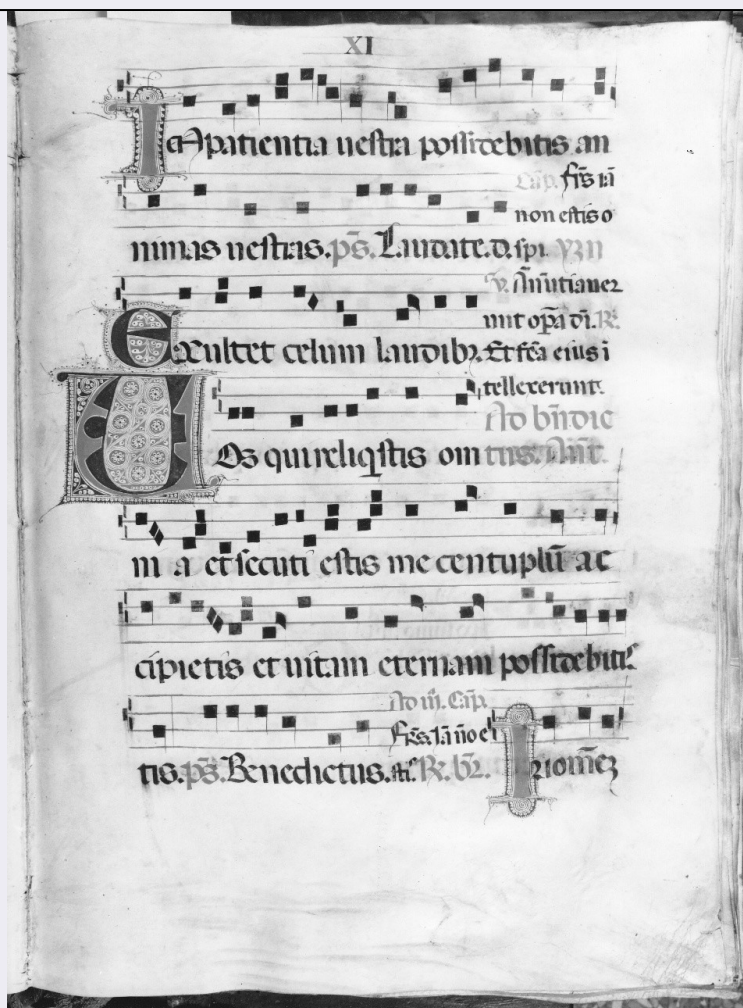 XI
In patientia uestra possidebitis an
Cap. fr̄s iā
non estis o
nimas uestras. ps̄. Laudate. d. spi. ym
V̄. Annūtiauer
unt op̄a dī. R̄.
Exultet celum laudibȝ. Et fc̄a eius ī
tellexerunt.
Ad bn̄dic
Uos qui reliq̄stis om tus. Ant̄.
nia et secuti estis me centuplū ac
cipietis et uitam eternam possidebitis
Ad iii. Cap.
Frēs. Iā nō e
tis. ps̄. Benedictus. R̄. br̄. In omēȝ